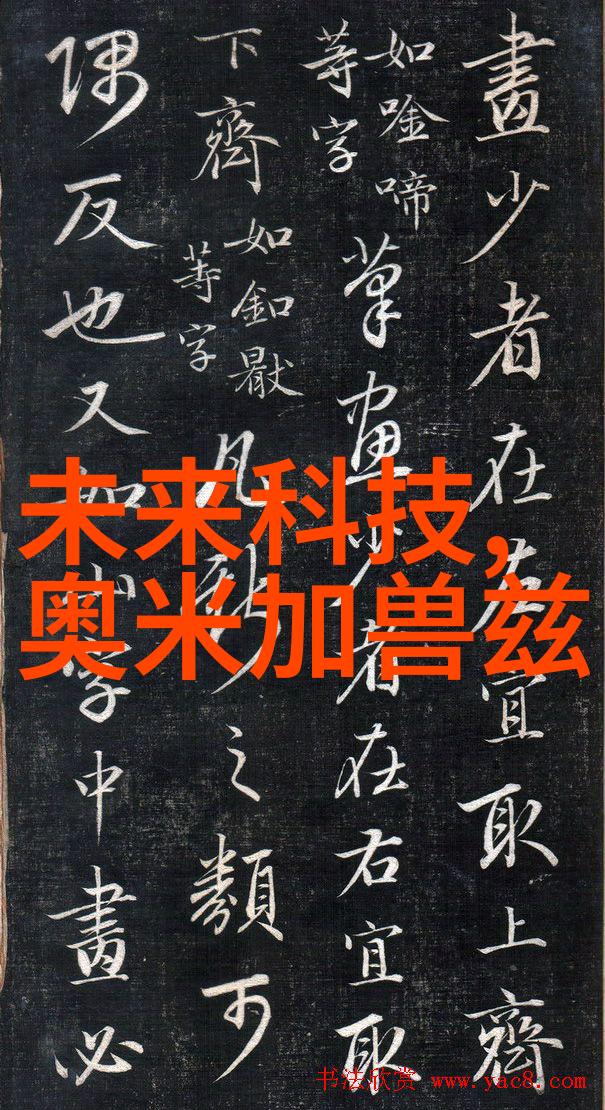 未来科技,
奥米加兽兹
畫少者在左宜取上齊
如唫啼
等字
筆畫少者在右宜取
下齊
如釦
等字
凡之類可
隅反也又如字中畫必
书法欣赏 www.yac8.com